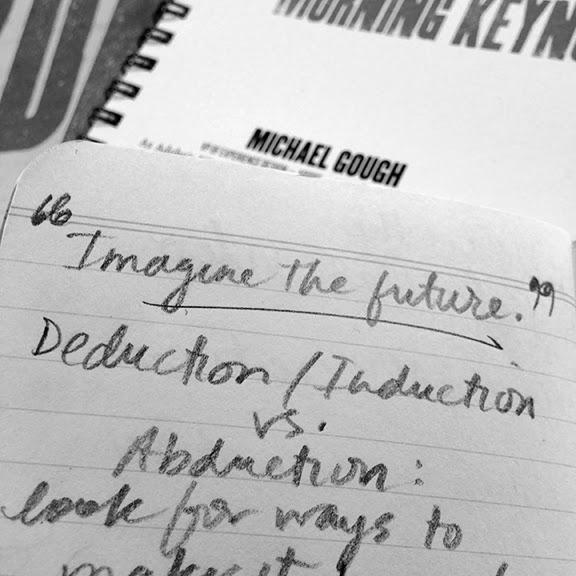 MORNING KEYNO
MICHAEL GOUGH
VP OF EXPERIENCE DESIGN
“Imagine the future.”
Deduction / Induction
vs.
Abduction:
look for ways to
make it